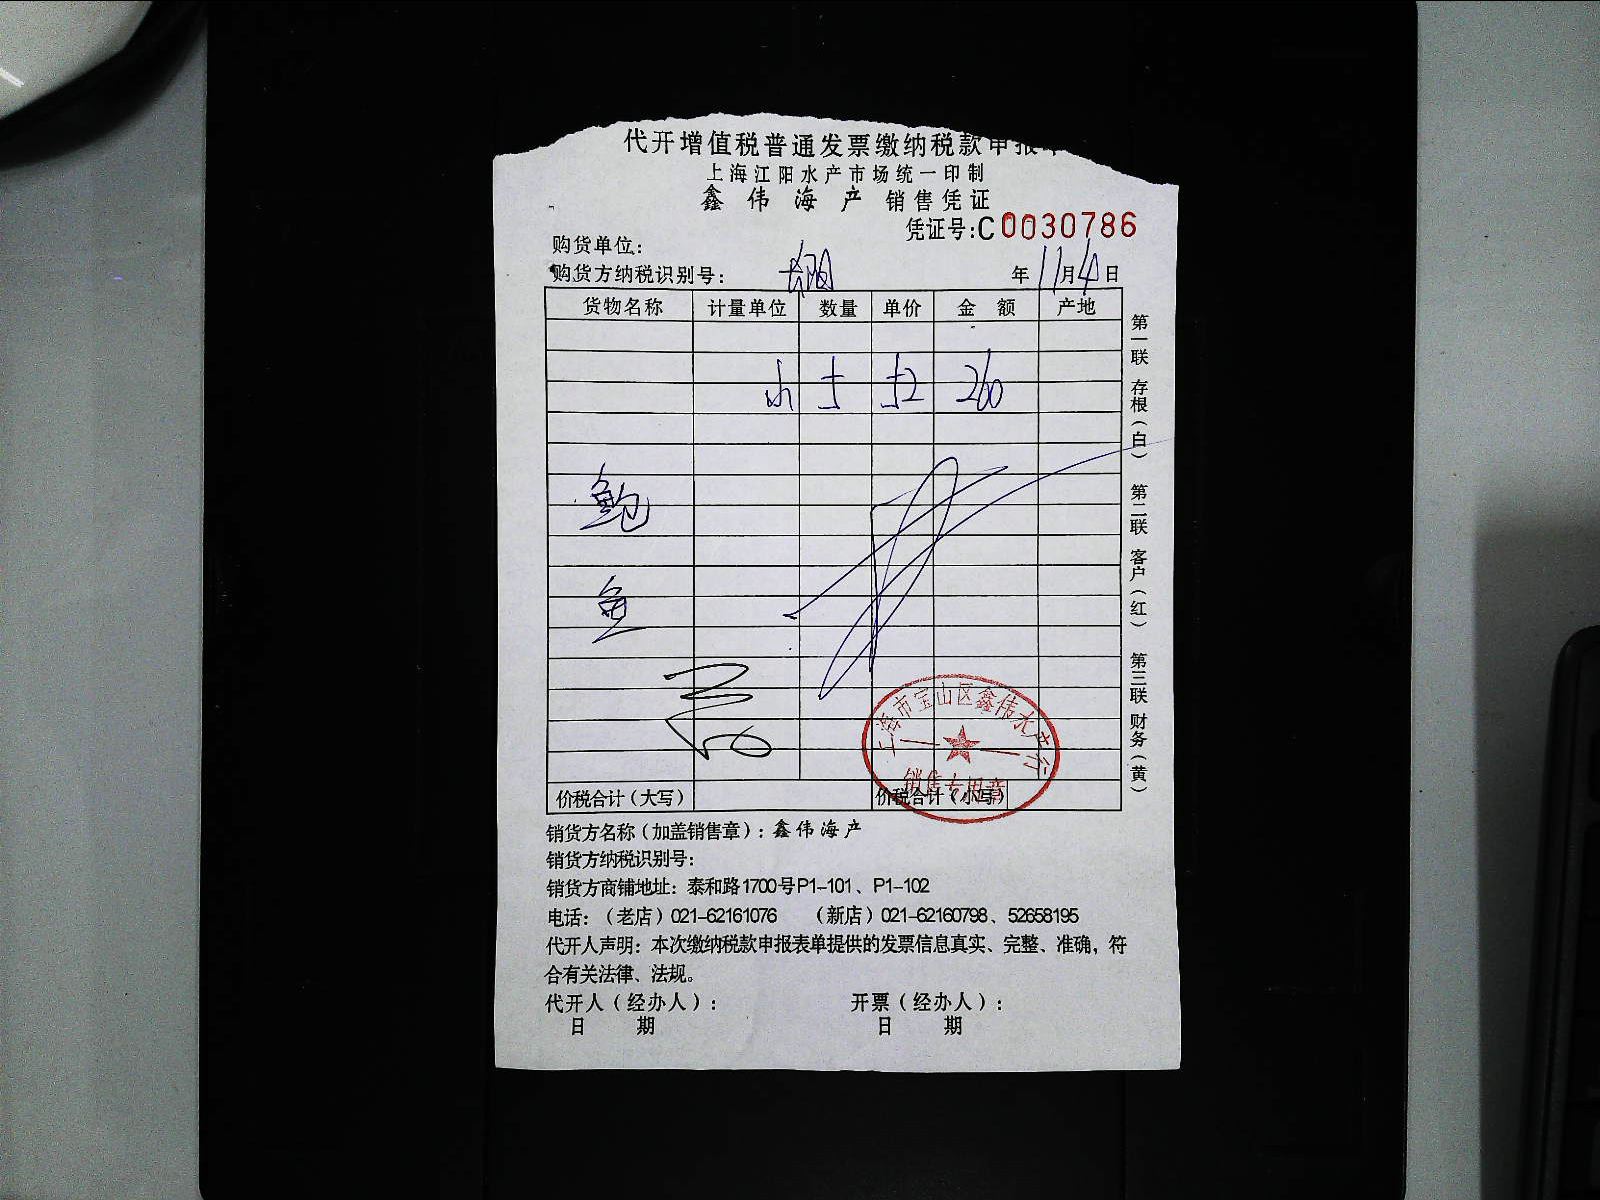 代开增值税普通发票缴纳税款申报单
上海江阳水产市场统一印制
鑫伟海产 销售凭证
凭证号:C0030786
购货单位:
购货方纳税识别号: 年11月4日
货物名称 计量单位 数量 单价 金 额 产地
小 260
鲍
鱼
价税合计(大写) 价税合计(小写)
上海市宝山区鑫伟水产行
销售专用章
销货方名称(加盖销售章): 鑫伟海产
销货方纳税识别号:
销货方商铺地址: 泰和路1700号P1-101、P1-102
电话:(老店)021-62161076 (新店)021-62160798、52658195
代开人声明: 本次缴纳税款申报表单提供的发票信息真实、完整、准确,符
合有关法律、法规。
代开人(经办人): 开票(经办人):
日 期 日 期
第一联 存根(白) 第二联 客户(红) 第三联 财务(黄)